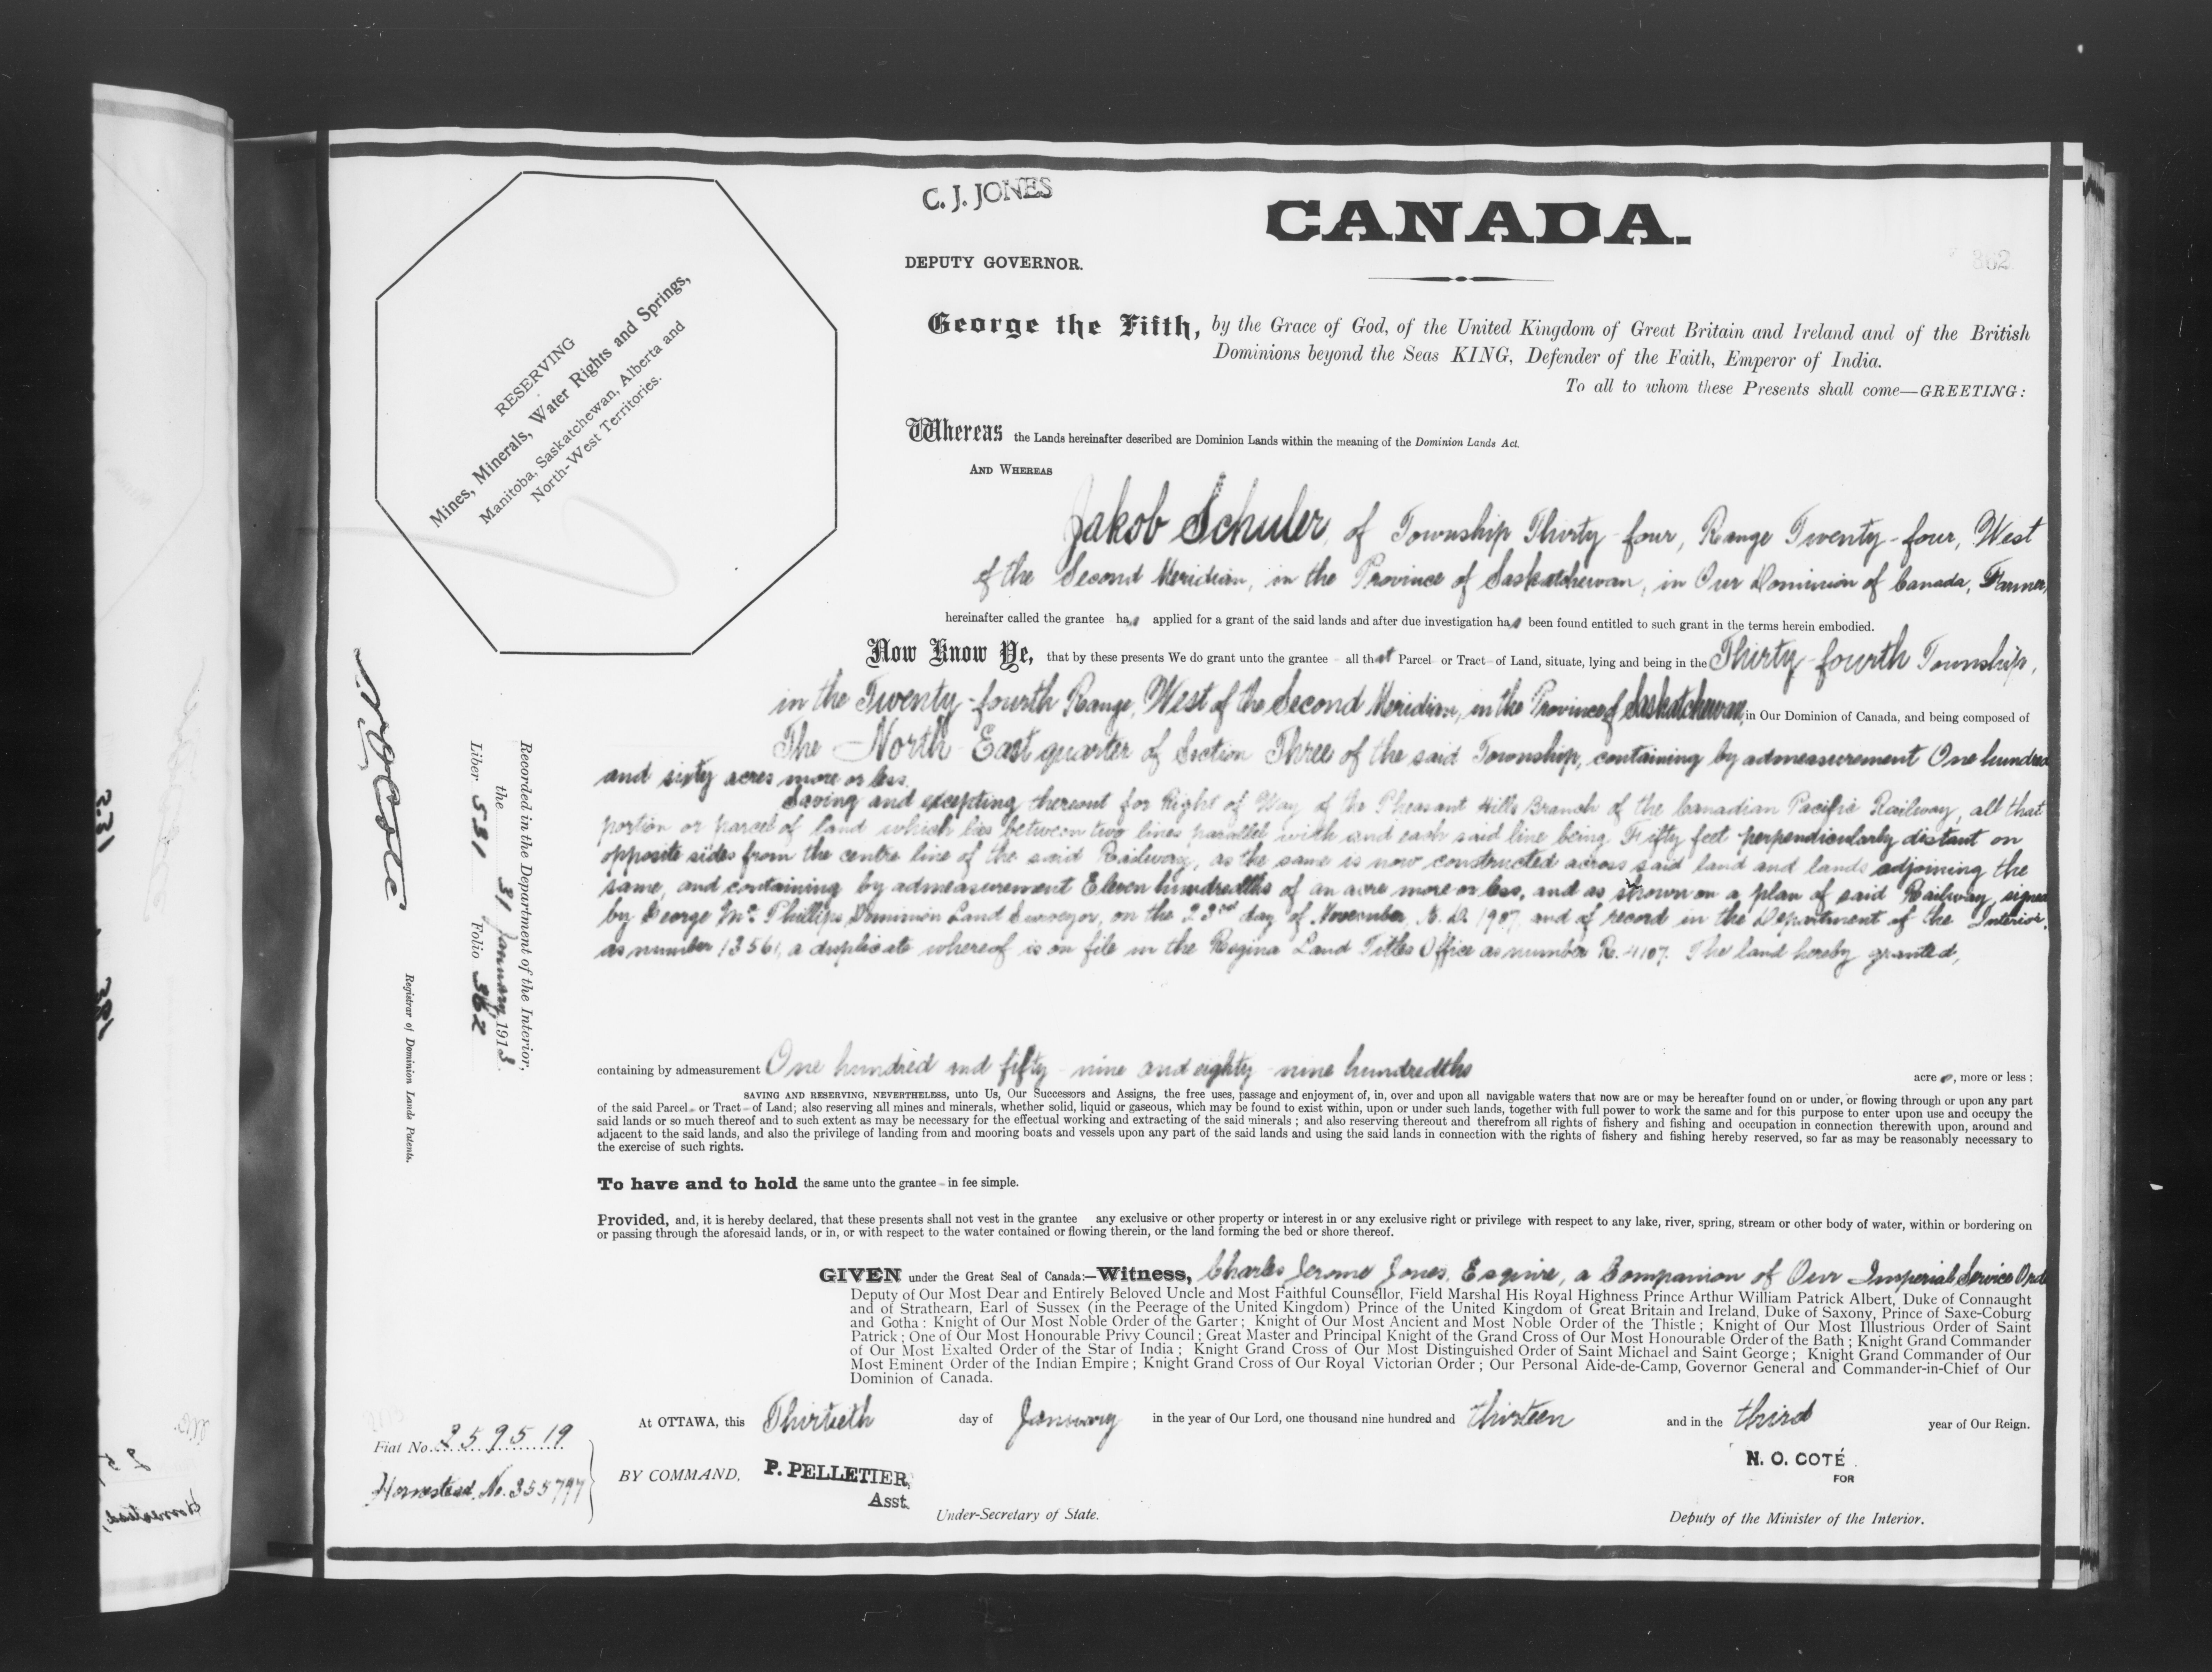 C. J. JONES
DEPUTY GOVERNOR.
CANADA.
362
RESERVING
Mines, Minerals, Water Rights and Springs,
Manitoba, Saskatchewan, Alberta and
North-West Territories.
George the Fifth, by the Grace of God, of the United Kingdom of Great Britain and Ireland and of the British
Dominions beyond the Seas KING, Defender of the Faith, Emperor of India.
To all to whom these Presents shall come—GREETING:
Whereas the Lands hereinafter described are Dominion Lands within the meaning of the Dominion Lands Act.
AND WHEREAS
Jakob Schuler, of Township Thirty-four, Range Twenty-four, West
of the Second Meridian, in the Province of Saskatchewan, in Our Dominion of Canada, Farmer,
hereinafter called the grantee has applied for a grant of the said lands and after due investigation has been found entitled to such grant in the terms herein embodied.
Now Know Ye, that by these presents We do grant unto the grantee all that Parcel or Tract of Land, situate, lying and being in the Thirty-fourth Township,
in the Twenty-fourth Range, West of the Second Meridian, in the Province of Saskatchewan, in Our Dominion of Canada, and being composed of
The North East quarter of Section Three of the said Township, containing by admeasurement One hundred
and sixty acres more or less.
Saving and excepting thereout for Right of Way of the Pheasant Hills Branch of the Canadian Pacific Railway, all that
portion or parcel of land which lies between two lines parallel with and each said line being Fifty feet perpendicularly distant on
opposite sides from the centre line of the said Railway, as the same is now constructed across said land and lands adjoining the
same, and containing by admeasurement Eleven hundredths of an acre more or less, and as shown on a plan of said Railway, signed
by George Mc Phillips, Dominion Land Surveyor, on the 23rd day of November, A. D. 1907, and of record in the Department of the Interior,
as number 13561, a duplicate whereof is on file in the Regina Land Titles Office as number R. 4107. The land hereby granted,
containing by admeasurement One hundred and fifty-nine and eighty-nine hundredths acres, more or less:
SAVING AND RESERVING, NEVERTHELESS, unto Us, Our Successors and Assigns, the free uses, passage and enjoyment of, in, over and upon all navigable waters that now are or may be hereafter found on or under, or flowing through or upon any part
of the said Parcel or Tract of Land; also reserving all mines and minerals, whether solid, liquid or gaseous, which may be found to exist within, upon or under such lands, together with full power to work the same and for this purpose to enter upon use and occupy the
said lands or so much thereof and to such extent as may be necessary for the effectual working and extracting of the said minerals; and also reserving thereout and therefrom all rights of fishery and fishing and occupation in connection therewith upon, around and
adjacent to the said lands, and also the privilege of landing from and mooring boats and vessels upon any part of the said lands and using the said lands in connection with the rights of fishery and fishing hereby reserved, so far as may be reasonably necessary to
the exercise of such rights.
To have and to hold the same unto the grantee in fee simple.
Provided, and, it is hereby declared, that these presents shall not vest in the grantee any exclusive or other property or interest in or any exclusive right or privilege with respect to any lake, river, spring, stream or other body of water, within or bordering on
or passing through the aforesaid lands, or in, or with respect to the water contained or flowing therein, or the land forming the bed or shore thereof.
GIVEN under the Great Seal of Canada:—Witness, Charles Jerome Jones, Esquire, a Companion of Our Imperial Service Orde
Deputy of Our Most Dear and Entirely Beloved Uncle and Most Faithful Counsellor, Field Marshal His Royal Highness Prince Arthur William Patrick Albert, Duke of Connaught
and of Strathearn, Earl of Sussex (in the Peerage of the United Kingdom) Prince of the United Kingdom of Great Britain and Ireland, Duke of Saxony, Prince of Saxe-Coburg
and Gotha: Knight of Our Most Noble Order of the Garter; Knight of Our Most Ancient and Most Noble Order of the Thistle; Knight of Our Most Illustrious Order of Saint
Patrick; One of Our Most Honourable Privy Council; Great Master and Principal Knight of the Grand Cross of Our Most Honourable Order of the Bath; Knight Grand Commander
of Our Most Exalted Order of the Star of India; Knight Grand Cross of Our Most Distinguished Order of Saint Michael and Saint George; Knight Grand Commander of Our
Most Eminent Order of the Indian Empire; Knight Grand Cross of Our Royal Victorian Order; Our Personal Aide-de-Camp, Governor General and Commander-in-Chief of Our
Dominion of Canada.
At OTTAWA, this Thirtieth day of January in the year of Our Lord, one thousand nine hundred and thirteen and in the third year of Our Reign.
Fiat No. 259519
Homestead No. 355797
BY COMMAND, P. PELLETIER,
Asst.
Under-Secretary of State.
N. O. COTÉ
FOR
Deputy of the Minister of the Interior.
Recorded in the Department of the Interior,
the 31 January 1913
Liber 531 Folio 362
N O Coté
Registrar of Dominion Lands Patents.